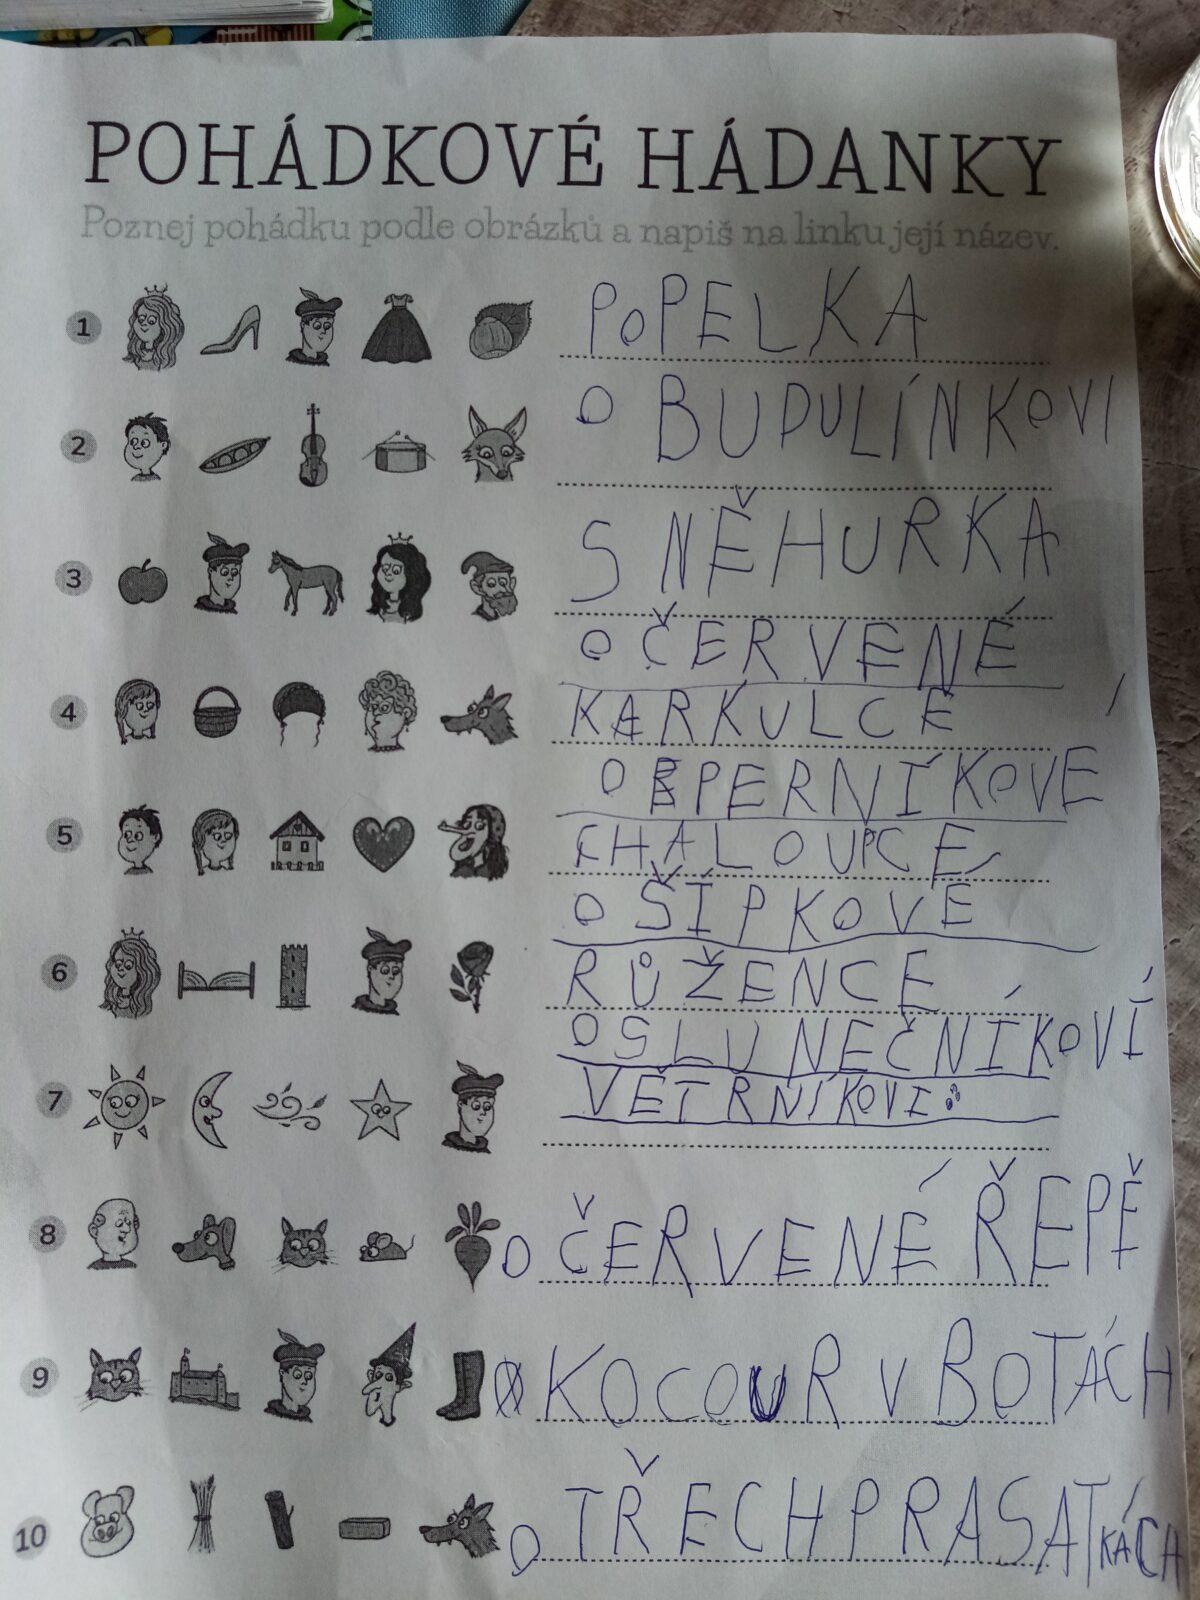 POHÁDKOVÉ HÁDANKY
Poznej pohádku podle obrázků a napiš na linku její název.
1 POPELKA
2 O BUDULÍNKOVI
3 SNĚHURKA
O ČERVENÉ
4 KARKULCE
O PERNÍKOVÉ
5 CHALOUPCE
O ŠÍPKOVÉ
6 RŮŽENCE
O SLUNEČNÍKOVÍ
7 VĚTRNÍKOVI
8 O ČERVENÉ ŘEPĚ
9 KOCOUR V BOTÁCH
10 O TŘECH PRASATKÁCH